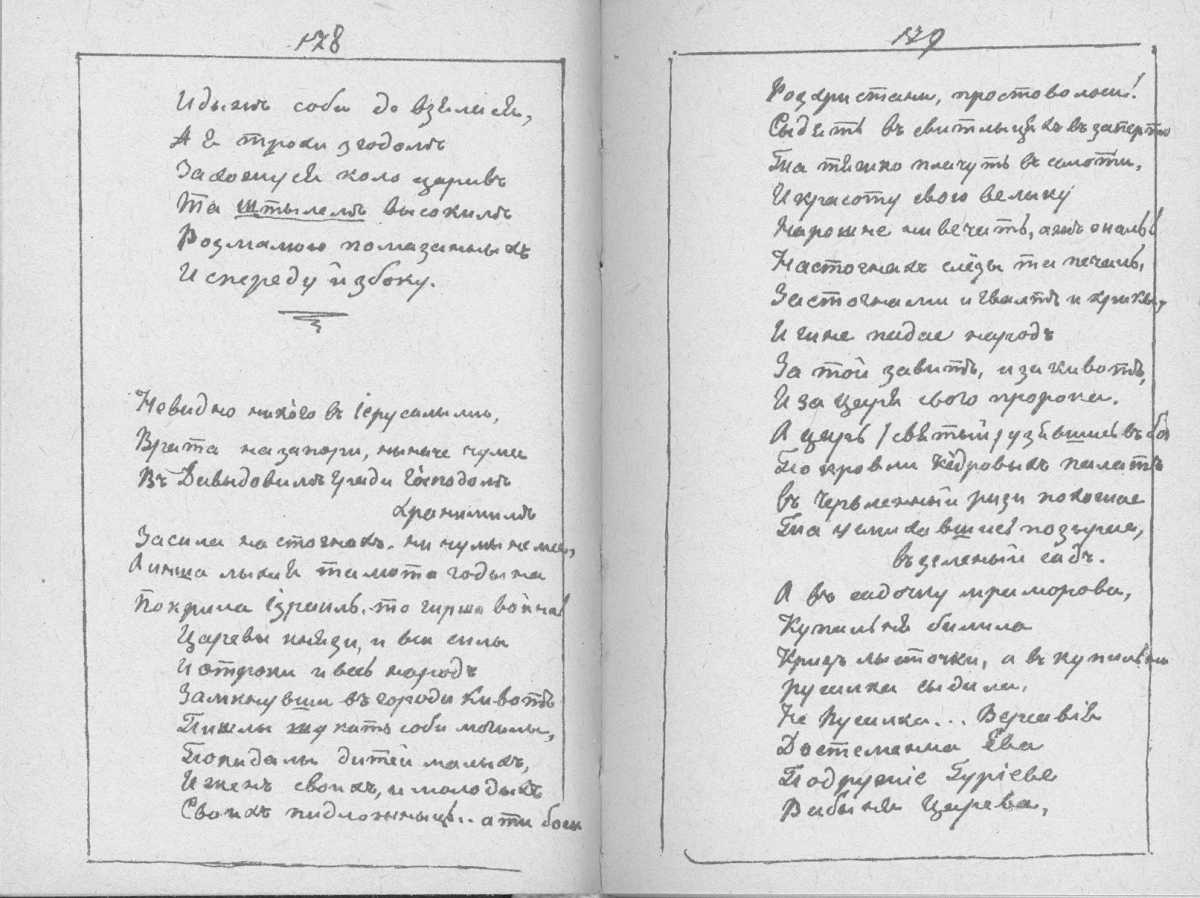 178
Идыжъ соби до взилися,
А я трохи згодомъ
Заходжуся коло царивъ
Та штылемъ высокимъ
Розмалюю помазанныхъ
И спереду й збоку.
Невидно никого въ Іерусалыми,
Врата на запори, ниначе чума
Въ Давыдовимъ гради Господомъ
хранимимъ
Засила на стогнахъ. ни чумы нема,
А инша лыхая та люта годына
Покрила Ізраиль. то гирша война
Царевы князи, и вси силы
И отроки и весь народъ
Замкнувши въ городи кивотъ
Пишлы шукать соби могилы,
Покидалы дитей малыхъ,
И женъ своихъ, и молодыхъ
Своихъ пидложныць.. а ти босы
179
Розхристани, простоволоси!
Сыдять въ свитлыцяхъ въ заперти
Та тяжко плачуть въ самоти,
И красоту свою велыку
Марошне нивечить,
На стогнахъ слёзы та печаль,
За стогнами и гвалтъ и крикы,
И гине падае народъ
За той завитъ, и за кивотъ,
И за царя свого пророка.
А царь (святый) узявшись въ бо
По кровли кедровыхъ палатъ
въ червленный ризи походжае
Та чмыхавшись позырае,
въ зеленый садъ.
А въ садочку мраморова,
Купильня билила
Кризь лысточкы, а въ купильни
русалка сыдила.
Не Русалка... Версавія
Достеменна Ева
Подружіе Гуріеве
Рабыня Царева,